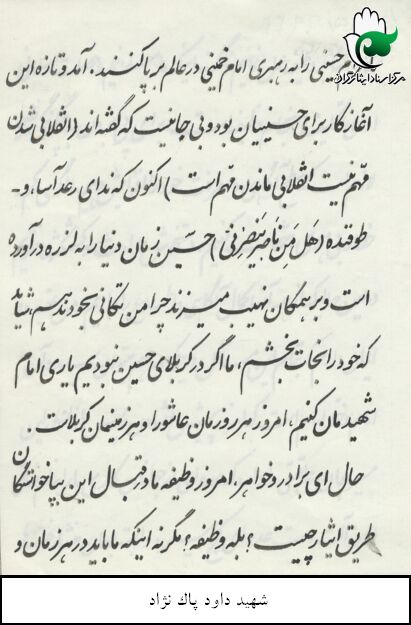 حسینی را به رهبری امام خمینی در عالم بر پا کنند. آمد و تازه این
مرکز اسناد ایثارگران
آغاز کار برای حسینیان بود و بی جا نیست که گفته‌اند (انقلابی شدن
مهم نیست انقلابی ماندن مهم است) اکنون که ندای رعد آسا، و -
طوفنده (هَل مِن ناصِرٍ یَنصُرُنی) حسین زمان دنیا را به لرزه در آورده
است و بر همگان نهیب میزند چرا من تکانی بخود ندهم شاید
که خود را نجات بخشم، ما اگر در کربلای حسین نبودیم یاری امام
شهیدمان کنیم، امروز هر روزمان عاشورا و هر زمینمان کربلاست.
حال ای برادر و خواهر، امروز وظیفه ما در قبال این بپاخواستگان
طریق ایثار چیست؟ بله وظیفه؟ مگر نه اینکه ما باید در هر زمان و
شهید داود پاک نژاد